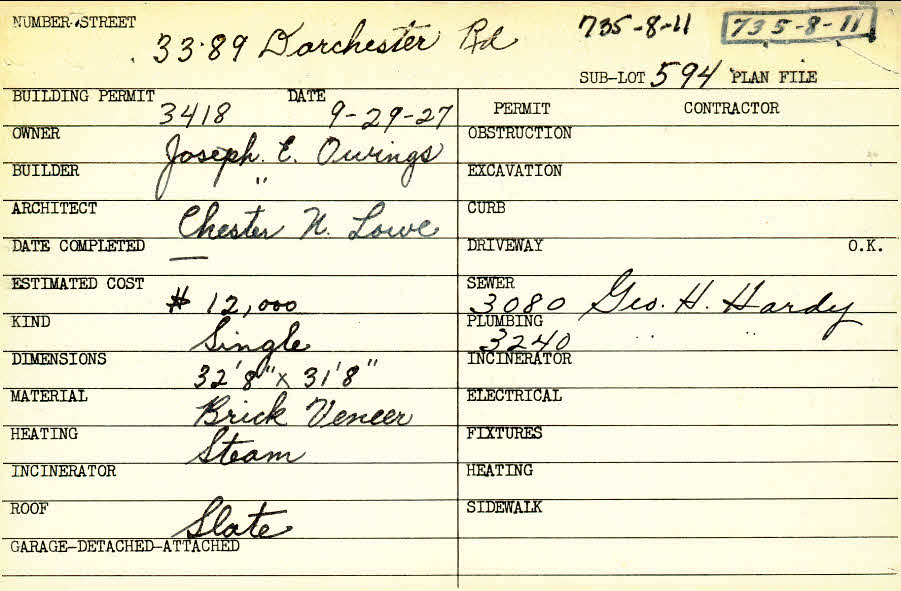 NUMBER-STREET
3389 Dorchester Rd
735-8-11
735-8-11
SUB-LOT 594 PLAN FILE
BUILDING PERMIT 3418 DATE 9-29-27
OWNER Joseph. E. Owings
BUILDER "
ARCHITECT Chester N. Lowe
DATE COMPLETED —
ESTIMATED COST $ 12,000
KIND Single
DIMENSIONS 32'8" x 31'8"
MATERIAL Brick Veneer
HEATING Steam
INCINERATOR
ROOF Slate
GARAGE-DETACHED-ATTACHED
PERMIT CONTRACTOR
OBSTRUCTION
EXCAVATION
CURB
DRIVEWAY O.K.
SEWER 3080 Geo. H. Hardy
PLUMBING 3240 " "
INCINERATOR
ELECTRICAL
FIXTURES
HEATING
SIDEWALK